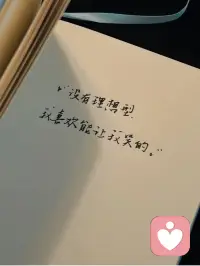 “没有理想型
我喜欢能让我笑的。”